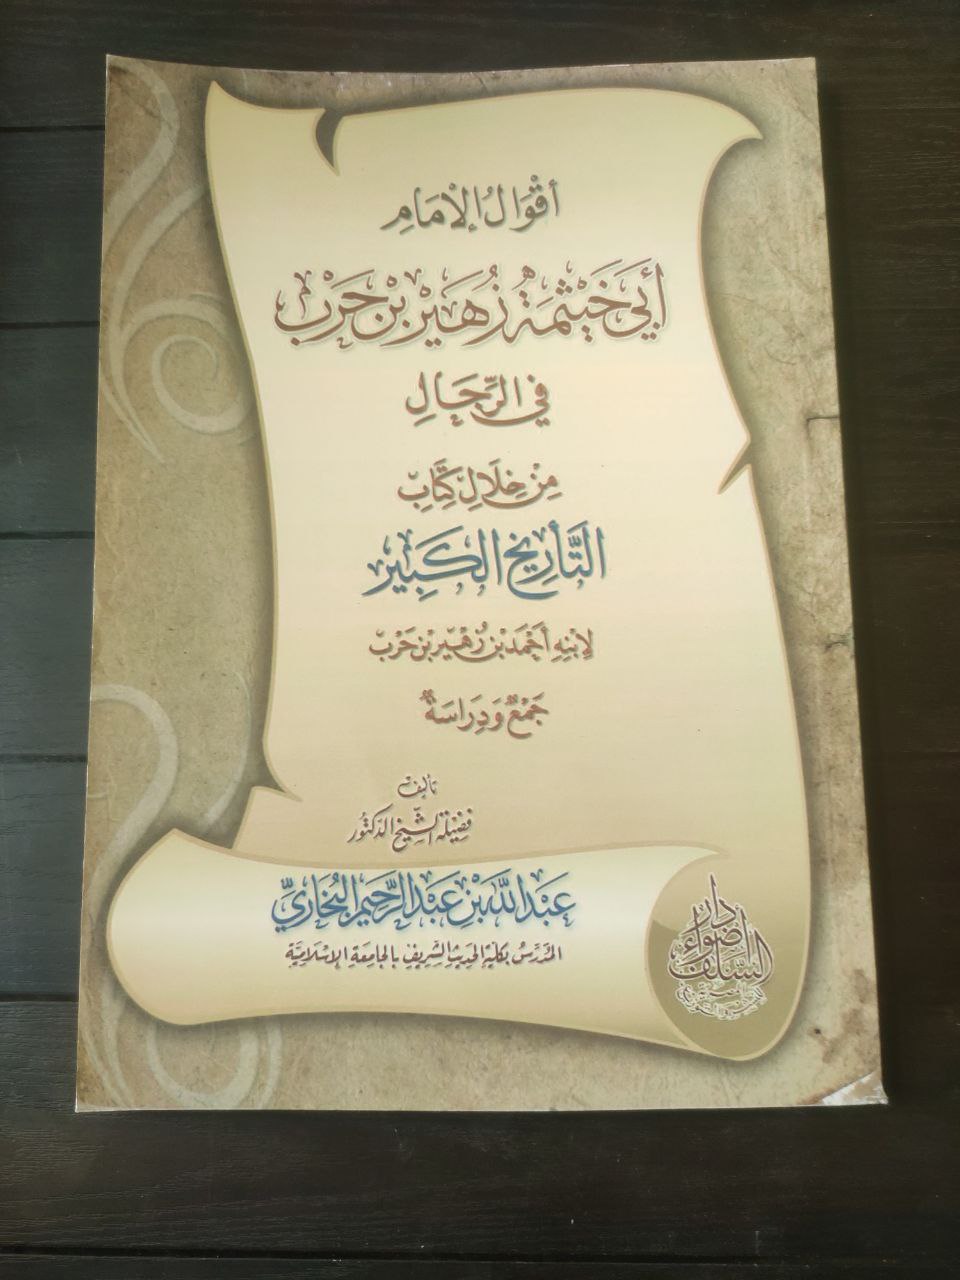 أَقْوَالُ الإِمَامِ
أَبِي خَيْثَمَةَ زُهَيْرِ بْنِ حَرْبٍ
فِي الرِّجَالِ
مِنْ خِلَالِ كِتَابِ
التَّأْرِيخِ الكَبِيرِ
لِابْنِهِ أَحْمَدَ بْنِ زُهَيْرِ بْنِ حَرْبٍ
جَمْعٌ وَدِرَاسَةٌ
تأليف
فضيلة الشيخ الدكتور
عَبْدِ اللَّهِ بْنِ عَبْدِ الرَّحِيمِ البُخَارِيِّ
المُدَرِّسُ بِكُلِّيَّةِ الحَدِيثِ الشَّرِيفِ بِالجَامِعَةِ الإِسْلَامِيَّةِ
دار
أضواء
السلف